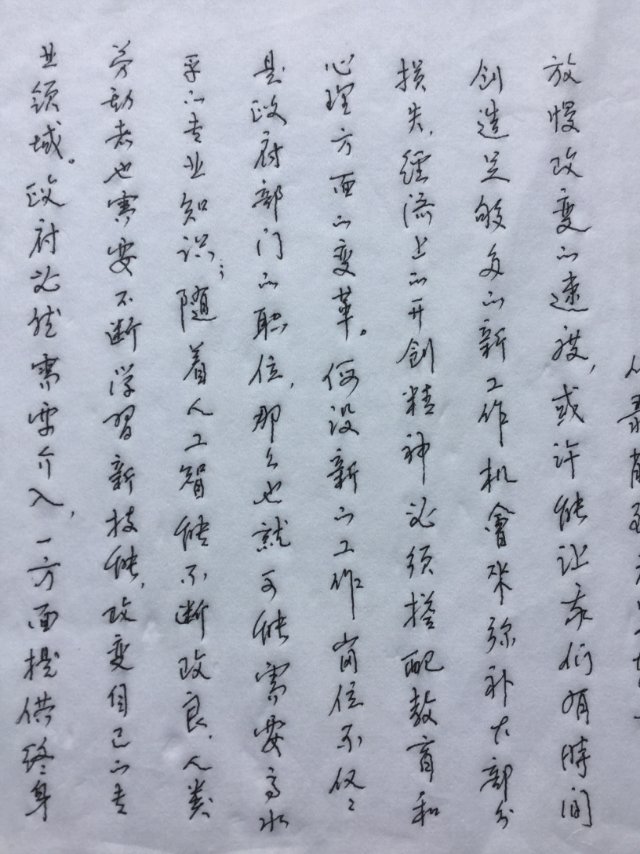 放慢改变的速度，或许能让我们有時间
创造足够多的新工作机會来弥补大部分
损失，經济上的开创精神必须搭配教育和
心理方面的变革。假设新的工作岗位不仅仅
是政府部门的职位，那么也就可能需要高水
平的专业知识；随着人工智能不断改良，人类
劳动者也需要不断学習新技能，改变自己的专
业领域。政府必然需要介入，一方面提供终身